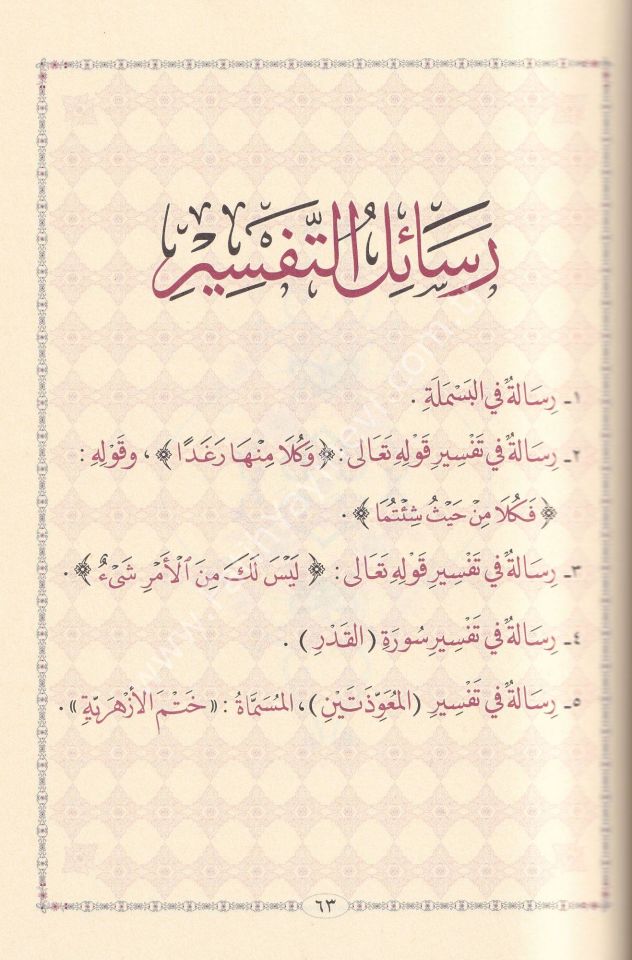 رَسَائِلُ التَّفْسِيرِ
١ـ رِسَالَةٌ فِي البَسْمَلَةِ .
٢ـ رِسَالَةٌ فِي تَفْسِيرِ قَوْلِهِ تَعَالَى : ﴿ وَكُلَا مِنْهَا رَغَدًا ﴾ ، وقَوْلِهِ :
﴿ فَكُلَا مِنْ حَيْثُ شِئْتُمَا ﴾ .
٣ـ رِسَالَةٌ فِي تَفْسِيرِ قَوْلِهِ تَعَالَى : ﴿ لَيْسَ لَكَ مِنَ ٱلْأَمْرِ شَىْءٌ ﴾ .
٤ـ رِسَالَةٌ فِي تَفْسِيرِ سُورَةِ ( القَدْرِ ) .
٥ـ رِسَالَةٌ فِي تَفْسِيرِ ( المُعَوِّذَتَيْنِ ) ، المُسَمَّاةُ : « خَتْمَ الأَزْهَرِيَّةِ » .
٦٣